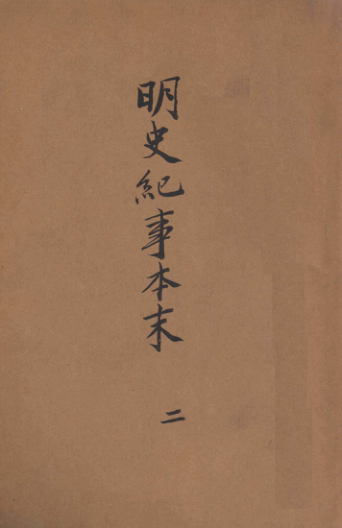 明史紀事本末
二